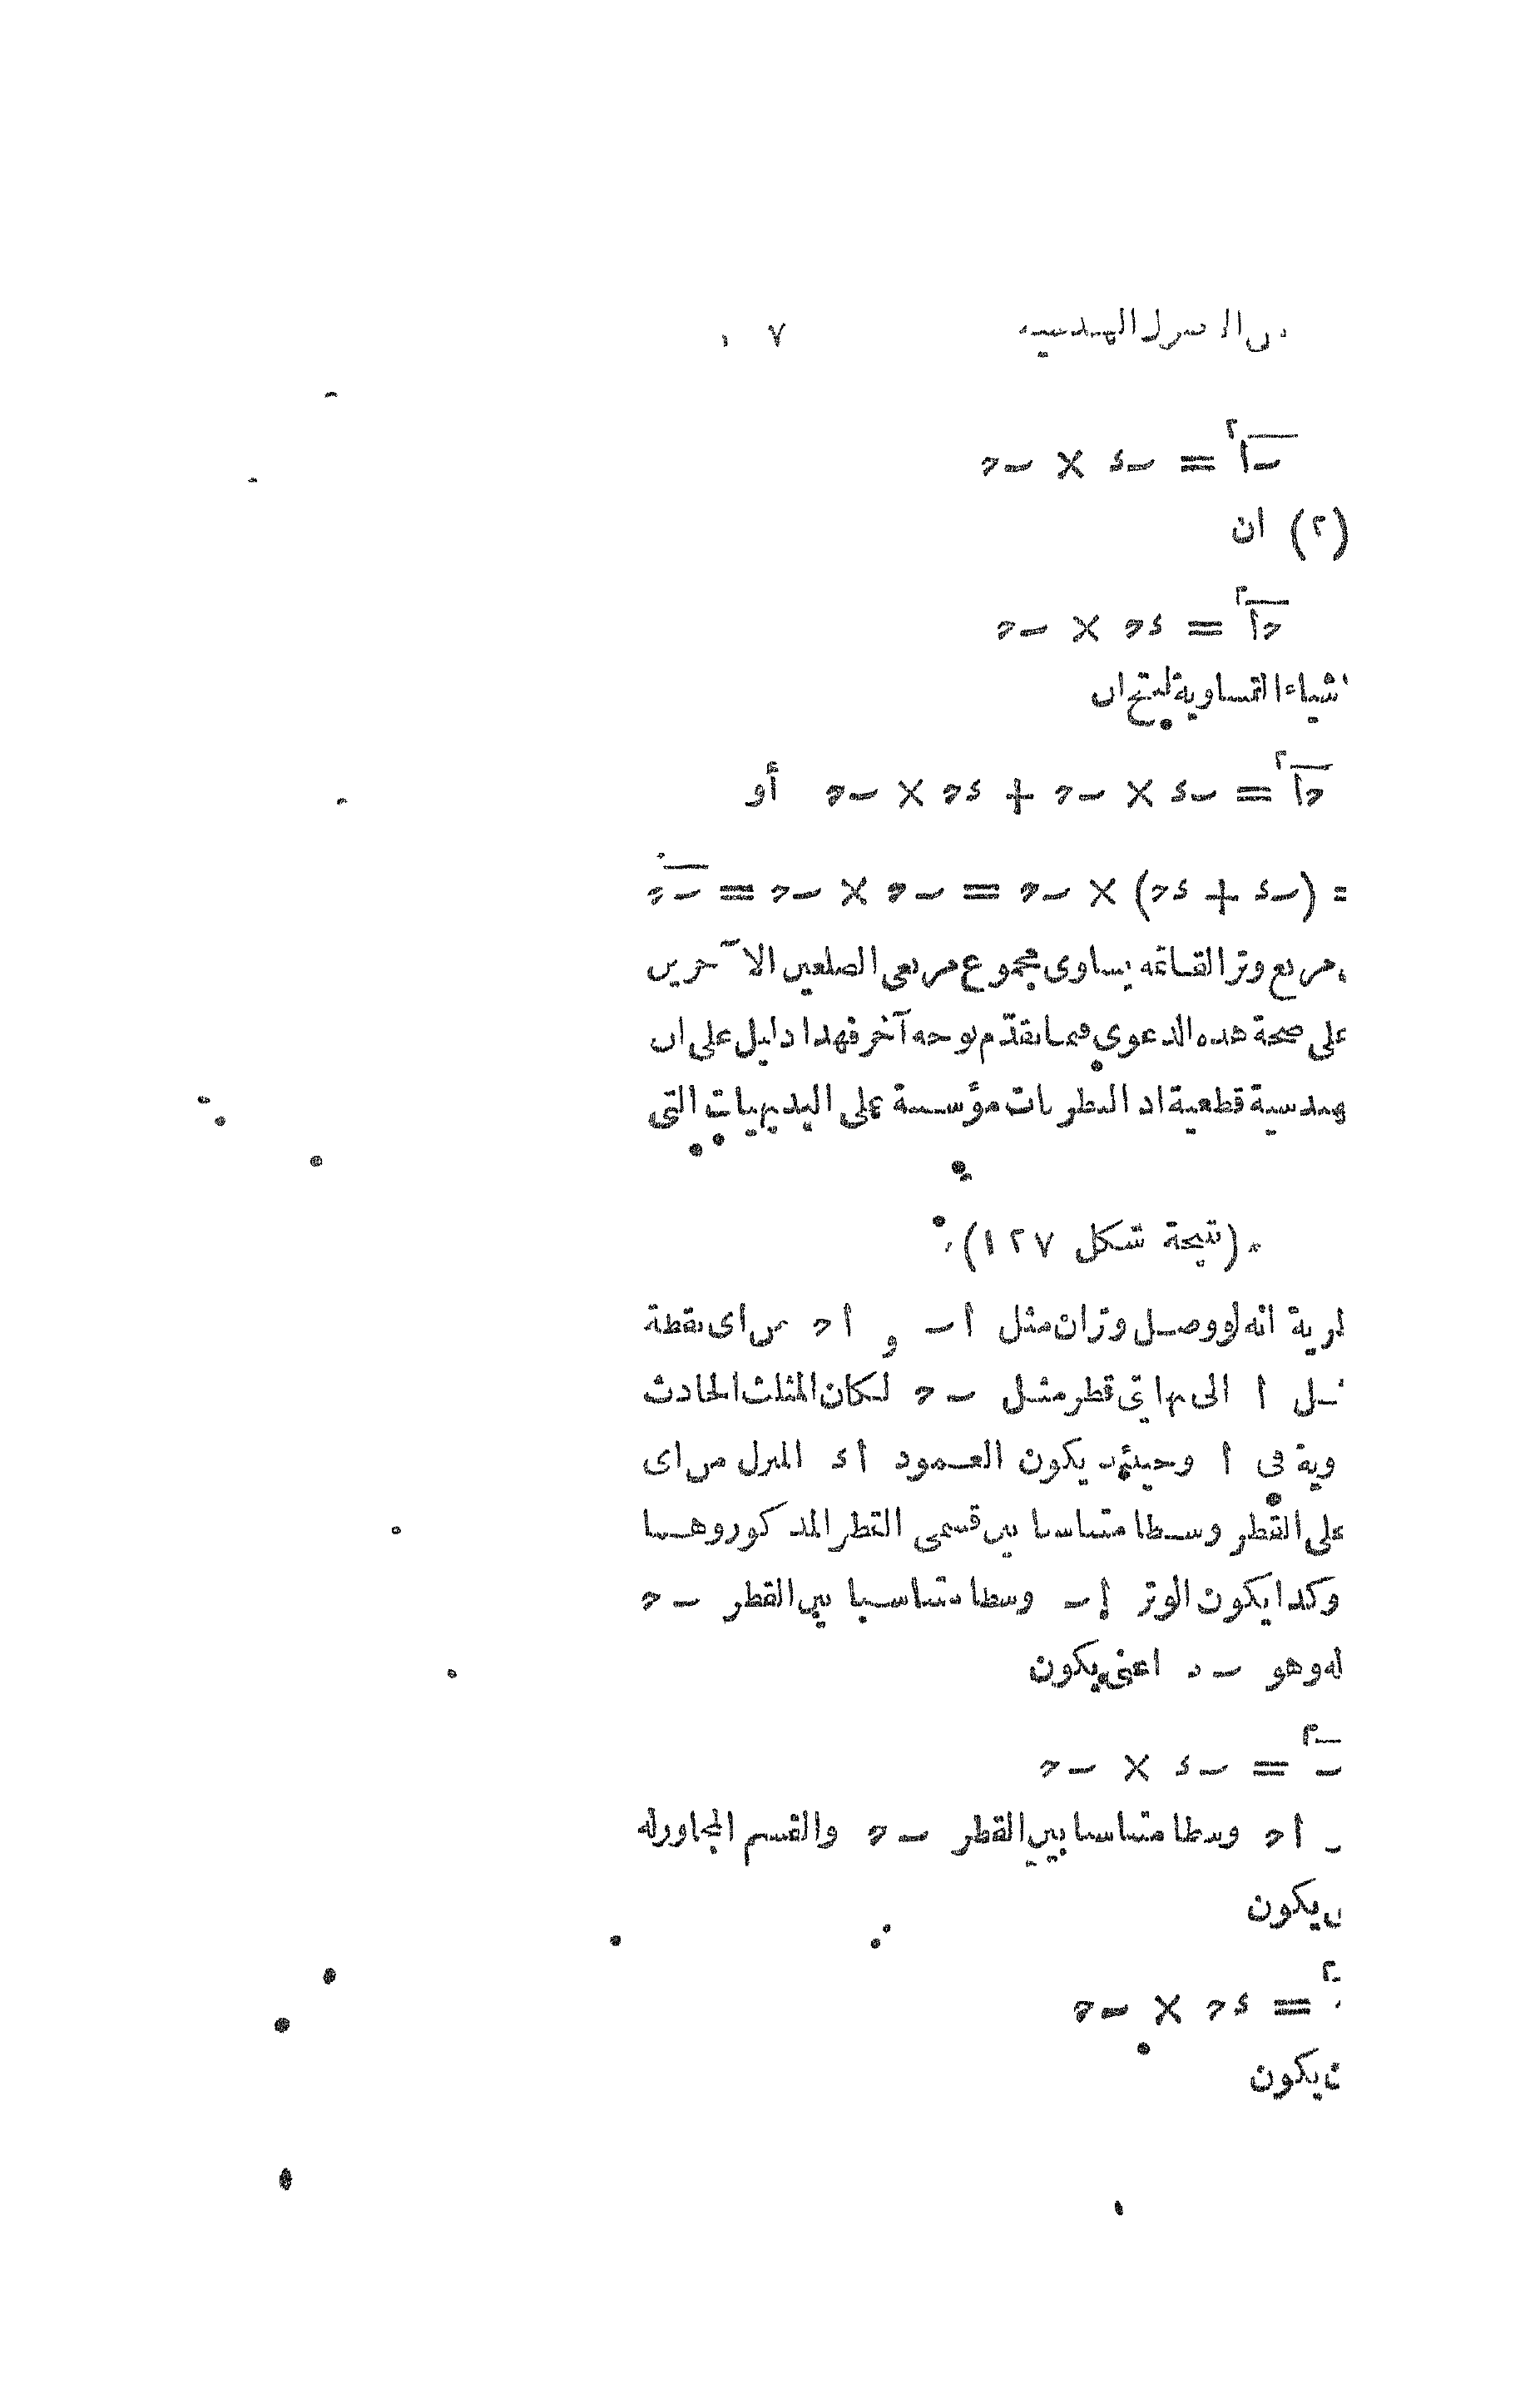 الهندسيه ٧
ـا٢ = ـء × ـح
(٢) ان
حا٢ = ءح × ـح
شياء المتساوية ينتج ان
حا٢ = ـء × ـح + ءح × ـح أو
= (ـء + ءح) × ـح = ـح × ـح = ـح٢
مربع وتر القائمه يساوى مجموع مربعى الضلعين الآخرين
على صحة هذه الدعوى فيما تقدّم بوجه آخر فهذا دليل على ان
هندسية قطعية اذ النظريات مؤسسة على البديهيات التى
(نتيجة شكل ١٢٧)
انه لو وصل وتران مثل اـ و اح من اى نقطة
ا الى نهايتى قطر مثل ـح لكان المثلث الحادث
وية فى ا وحينئذ يكون العمود اء المنزل من اى
على القطر وسطا متناسبا بين قسمى القطر المذكور وهما
وكذا يكون الوتر اـ وسطا متناسبا بين القطر ـح
له وهو ـد اعنى يكون
ـ٢ = ـء × ـح
اح وسطا متناسبا بين القطر ـح والقسم المجاور له
يكون
٢ = ءح × ـح
يكون